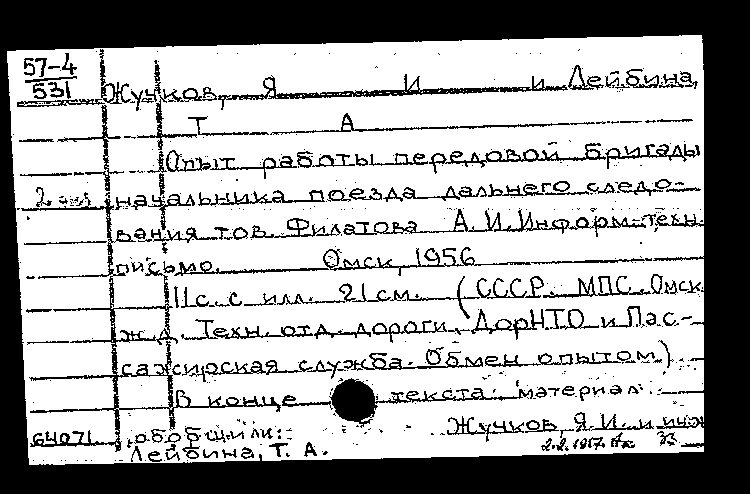 57-4
531
Жучков, Я И и Лейбина,
Т А
Опыт работы передовой бригады
2 экз начальника поезда дальнего следо-
вания тов. Филатова А.И. Информ.-техн.
письмо. Омск, 1956
11с. с илл. 21 см. (СССР. МПС. Омск.
ж.д. Техн. отд. дороги, ДорНТО и Пас-
сажирская служба. Обмен опытом)
В конце текста: материал
64071 обобщили: Жучков, Я.И. и
Лейбина, Т. А. 2.2.1957 33